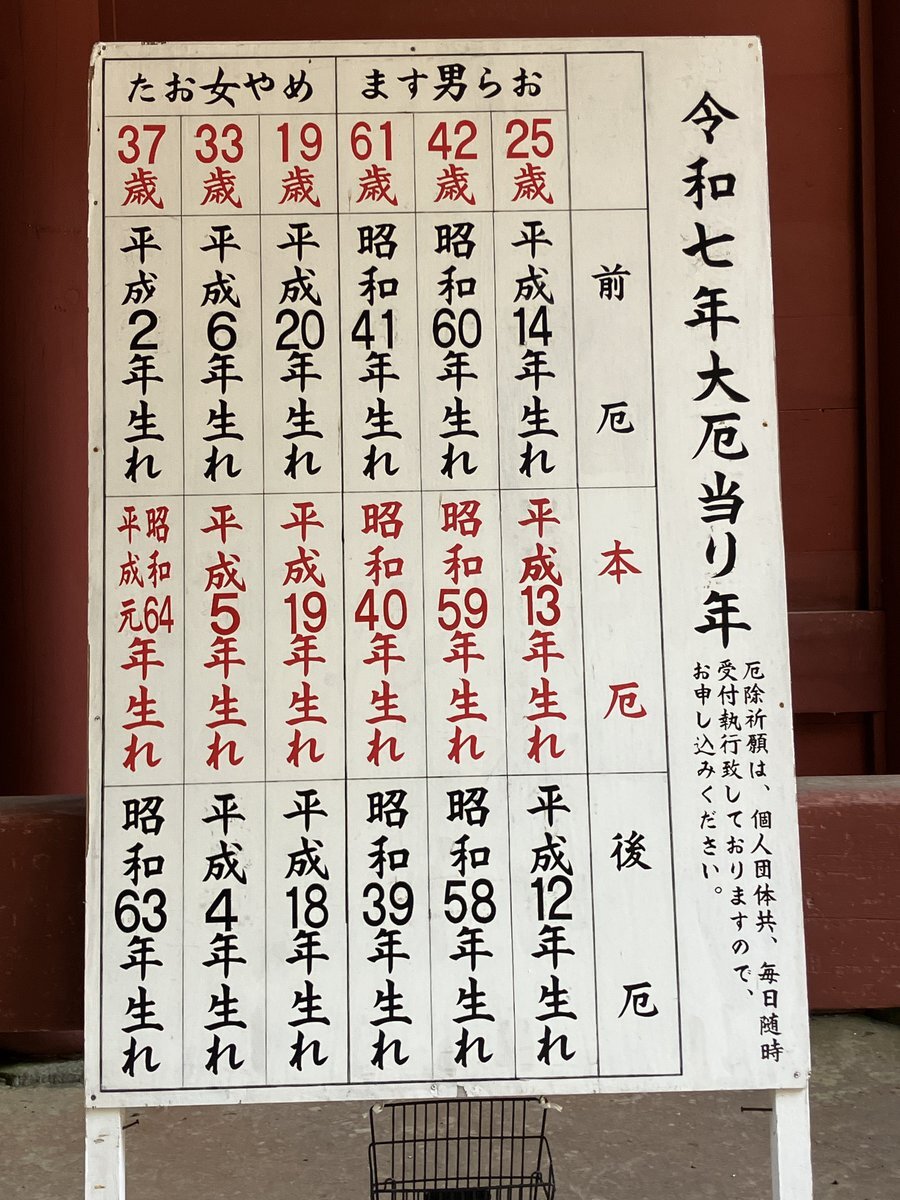 令和七年大厄当り年
厄除祈願は、個人団体共、毎日随時
受付執行致しておりますので、
お申し込みください。
前厄
本厄
後厄
ます男らお
25歳
平成14年生れ
平成13年生れ
平成12年生れ
42歳
昭和60年生れ
昭和59年生れ
昭和58年生れ
61歳
昭和41年生れ
昭和40年生れ
昭和39年生れ
たお女やめ
19歳
平成20年生れ
平成19年生れ
平成18年生れ
33歳
平成6年生れ
平成5年生れ
平成4年生れ
37歳
平成2年生れ
昭和64
平成元
年生れ
昭和63年生れ